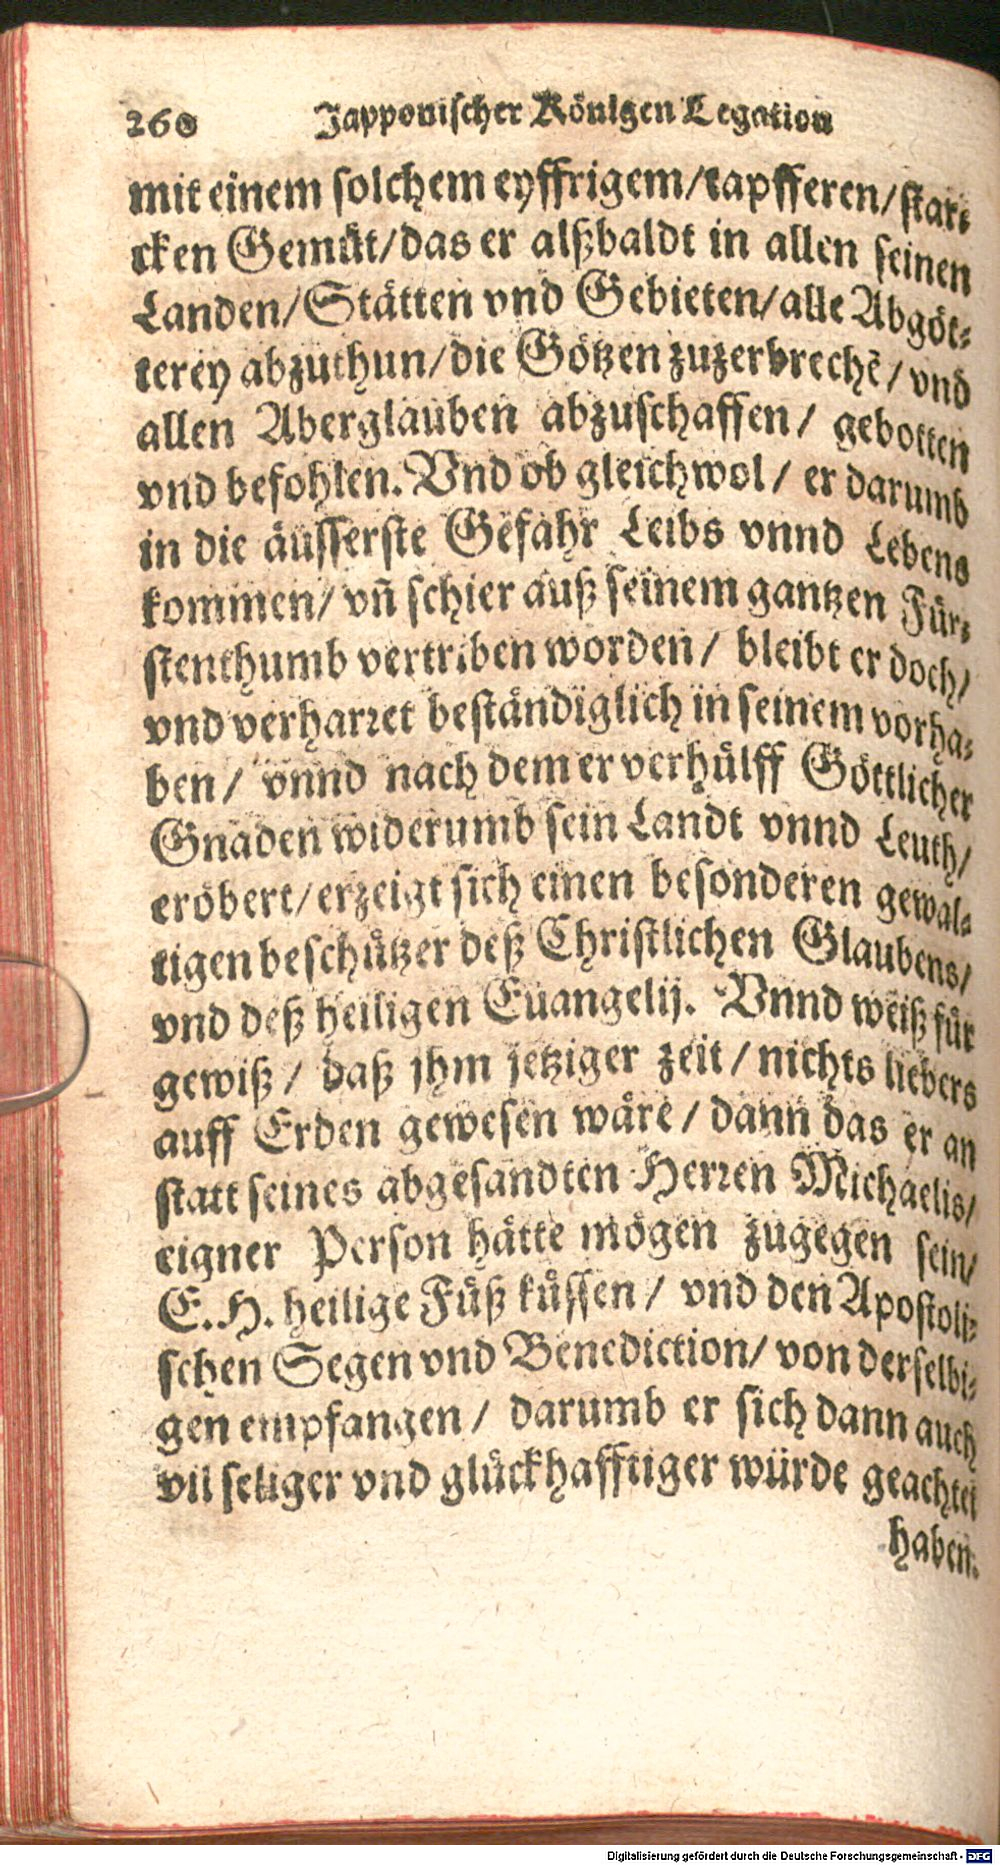 260 Japponischer Königen Legation
mit einem solchem eyffrigem/tapfferen/star⸗
cken Gemüt/das er alßbaldt in allen seinen
Landen/Stätten vnd Gebieten/alle Abgöt⸗
terey abzuthun/die Götzen zuzerbrechẽ/vnd
allen Aberglauben abzuschaffen/ gebotten
vnd befohlen. Vnd ob gleichwol/ er darumb
in die äusserste Gefahr Leibs vnnd Lebens
kommen/ vñ schier auß seinem gantzen Für⸗
stenthumb vertriben worden/ bleibt er doch/
vnd verharret beständiglich in seinem vorha⸗
ben/ vnnd nach dem er verhülff Göttlicher
Gnaden widerumb sein Landt vnnd Leuth/
eröbert/erzeigt sich einen besonderen gewal⸗
tigen beschützer deß Christlichen Glaubens/
vnd deß heiligen Euangelij. Vnnd weiß für
gewiß/ daß jhm jetziger zeit/nichts liebers
auff Erden gewesen wäre/ dann das er an
statt seines abgesandten Herren Michaelis/
eigner Person hätte mögen zugegen sein/
E. H. heilige Füß küssen/ vnd den Apostoli⸗
schen Segen vnd Benediction/ von derselbi⸗
gen empfangen/ darumb er sich dann auch
vil seliger vnd glückhafftiger würde geachtet
haben.
Digitalisierung gefördert durch die Deutsche Forschungsgemeinschaft - DFG